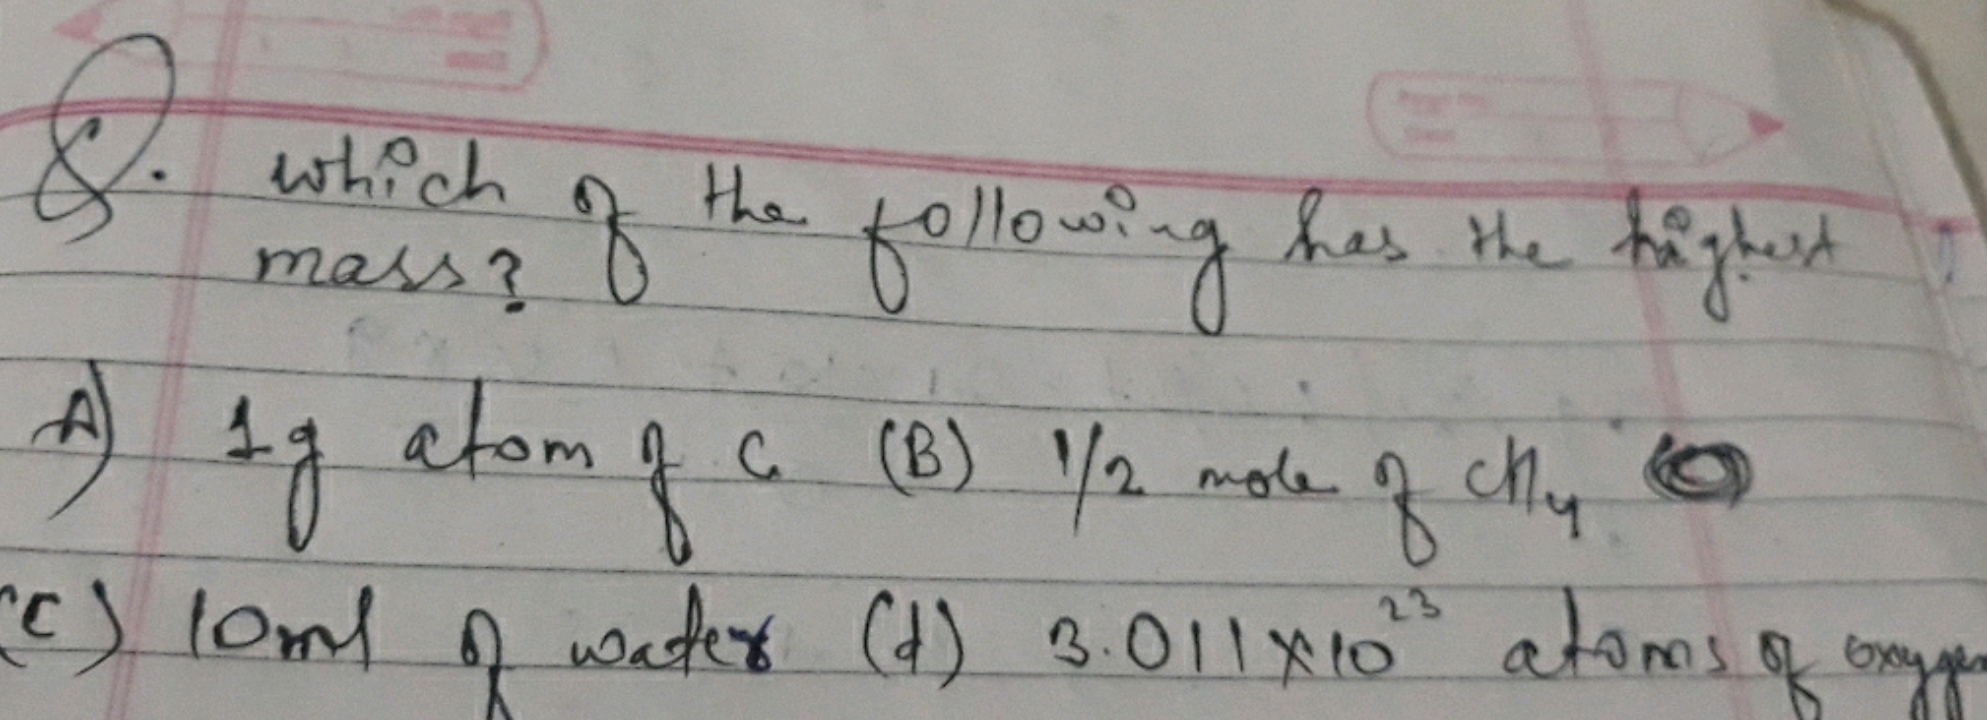 Q. which of the following has the highest
mass?
A) 1g atom of C (B) 1/2 mole of CH4
(C) 10ml of water (d) 3.011×10²³ atoms of oxygen